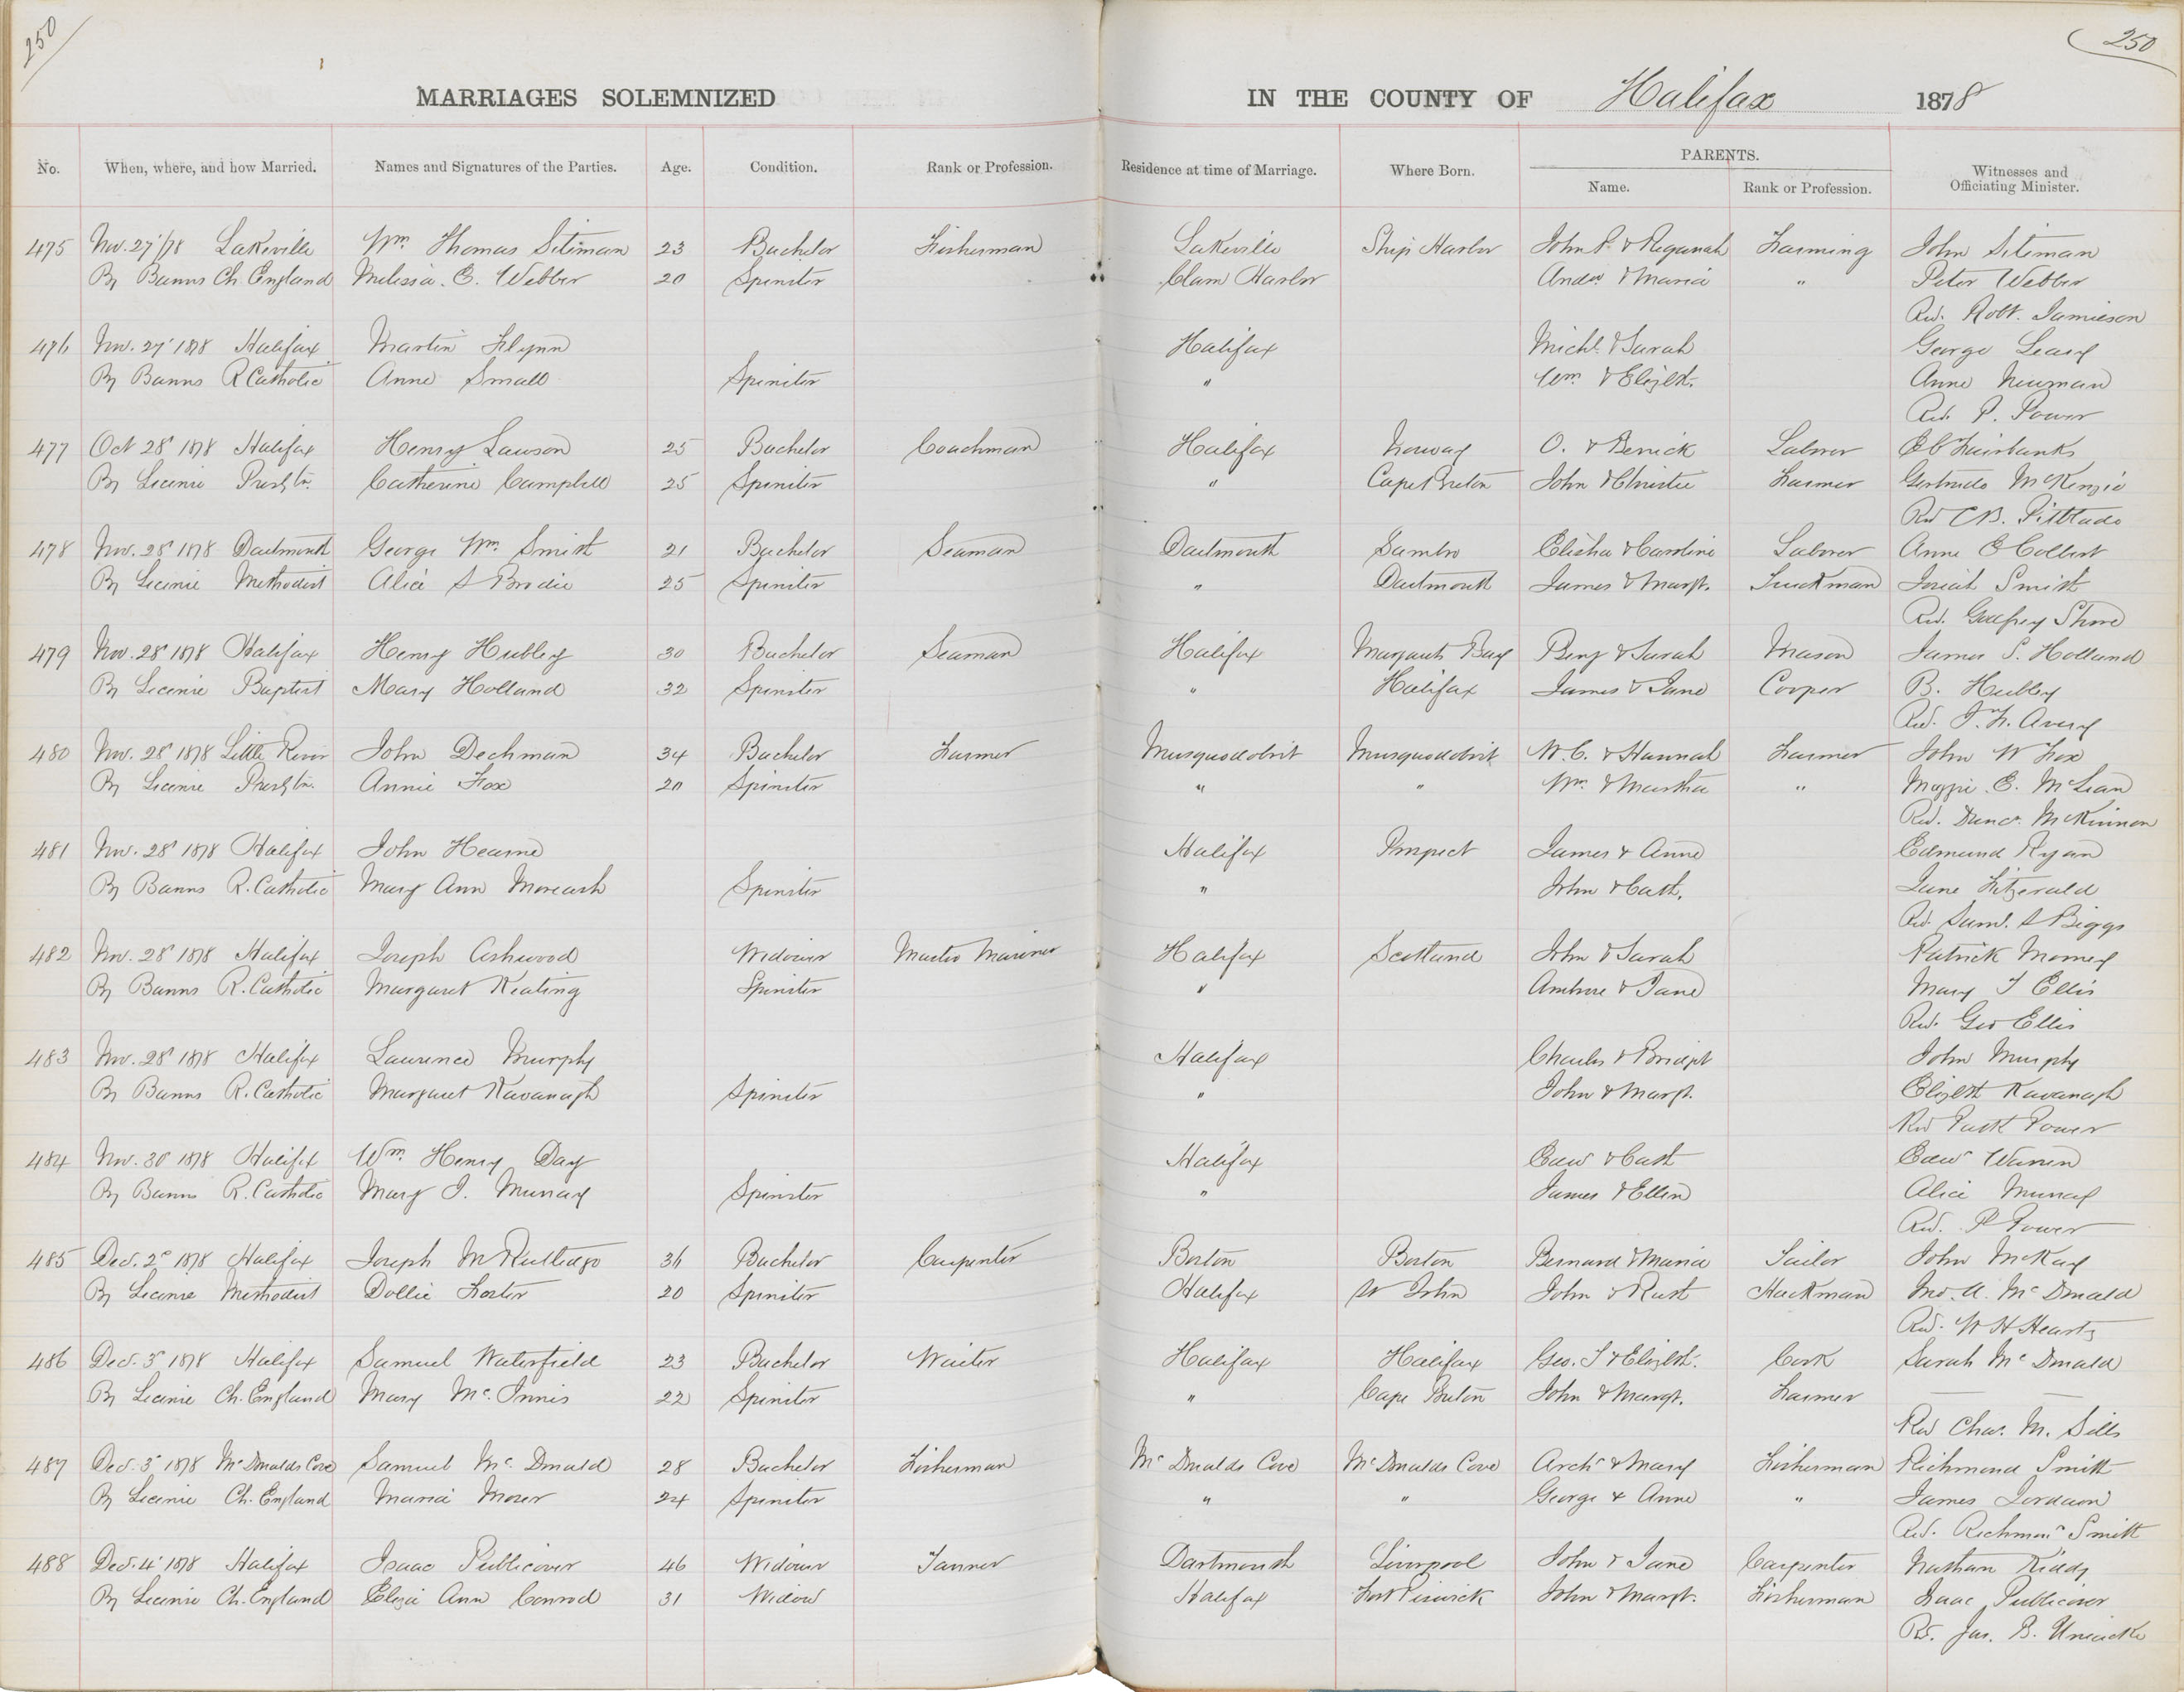 250
250
MARRIAGES SOLEMNIZED IN THE COUNTY OF Halifax 1878
No. When, where, and how Married. Names and Signatures of the Parties. Age. Condition. Rank or Profession. Residence at time of Marriage. Where Born. PARENTS. Name. Rank or Profession. Witnesses and Officiating Minister.
475 Nov. 27/78 Lakeville Wm. Thomas Siteman 23 Bachelor Fisherman Lakeville Ship Harbor John P. & Farming John Siteman
By Banns Ch. England Melissa. E. Webber 20 Spinster Clam Harbor Andw. & Maria " Peter Webber
Rev. Robt. Jamieson
476 Nov. 27 1878 Halifax Martin Flynn Halifax Michl. & Sarah George Leary
By Banns R Catholic Anne Small Spinster " Wm. & Elizbt. Anne Newman
Rev. P. Power
477 Oct 28 1878 Halifax Henry Lawson 25 Bachelor Coachman Halifax Norway O. & Berrick Laborer Fairbanks
By License Presbtn. Catherine Campbell 25 Spinster " Cape Breton John & Christie Farmer Gertrude McKenzie
Rev C B. Pitblado
478 Nov. 28 1878 Dartmouth George Wm. Smith 21 Bachelor Seaman Dartmouth Sambro Elisha & Caroline Laborer Anne E Colbert
By License Methodist Alice S Brodie 25 Spinster " Dartmouth James & Margt. Truckman Josiah Smith
Rev. Godfrey Shore
479 Nov. 28 1878 Halifax Henry Hubley 30 Bachelor Seaman Halifax Margarets Bay Benj & Sarah Mason James S. Holland
By License Baptist Mary Holland 32 Spinster " Halifax James & Jane Cooper B. Hubley
Rev. J. F. Avery
480 Nov. 28 1878 Little River John Dechman 34 Bachelor Farmer Musquodobit Musquodobit W. C. & Hannah Farmer John W Fox
By License Presbtn. Annie Fox 20 Spinster " " Wm. & Martha " Maggie. E. McLean
Rev. Dunc. McKinnon
481 Nov. 28 1878 Halifax John Hearne Halifax Prospect James & Anne Edmund Ryan
By Banns R. Catholic Mary Ann Moreash Spinster " John & Cath. Jane Fitzerald
Rev. Saml. S Biggs
482 Nov. 28 1878 Halifax Joseph Ashwood Widower Master Mariner Halifax Scotland John & Sarah Patrick
By Banns R. Catholic Margaret Keating Spinster " Ambrose & Jane Mary J Ellis
Rev. Geo Ellis
483 Nov. 28 1878 Halifax Laurence Murphy Halifax Charles & Bridget John Murphy
By Banns R. Catholic Margaret Kavanagh Spinster " John & Margt. Elizbt Kavanagh
Rev Patk Power
484 Nov. 30 1878 Halifax Wm. Henry Day Halifax Edw & Cath Edwd Warren
By Banns R. Catholic Mary J. Murray Spinster " James & Ellen Alice Murray
Rev. P Power
485 Dec. 2d 1878 Halifax Joseph M Rutledge 36 Bachelor Carpenter Boston Boston Bernard & Maria Sailor John McKay
By License Methodist Dollie Foster 20 Spinster Halifax St John John & Ruth Hackman Mc Donald
Rev. W H Heartz
486 Dec. 3 1878 Halifax Samuel Waterfield 23 Bachelor Waiter Halifax Halifax Geo. T & Elizbt. Cook Sarah Mc Donald
By License Ch. England Mary Mc. Innis 22 Spinster " Cape Breton John & Margt. Farmer
Rev Chas. M. Sills
487 Dec. 3 1878 McDonalds Cove Samuel Mc. Donald 28 Bachelor Fisherman Mc Donalds Cove McDonalds Cove Archd & Mary Fisherman Richmond Smith
By License Ch. England Maria Moser 24 Spinster " " George & Anne " James Jordaon
Rev. Richmond Smith
488 Dec. 4 1878 Halifax Isaac Publicover 46 Widower Tanner Dartmouth Liverpool John & Jane Carpenter Nathan Kiddy
By License Ch. England Eliza Ann Conrod 31 Widow Halifax Port Piswick John & Margt. Fisherman Isaac Publicover
Rev. Jas. B. Uniacke